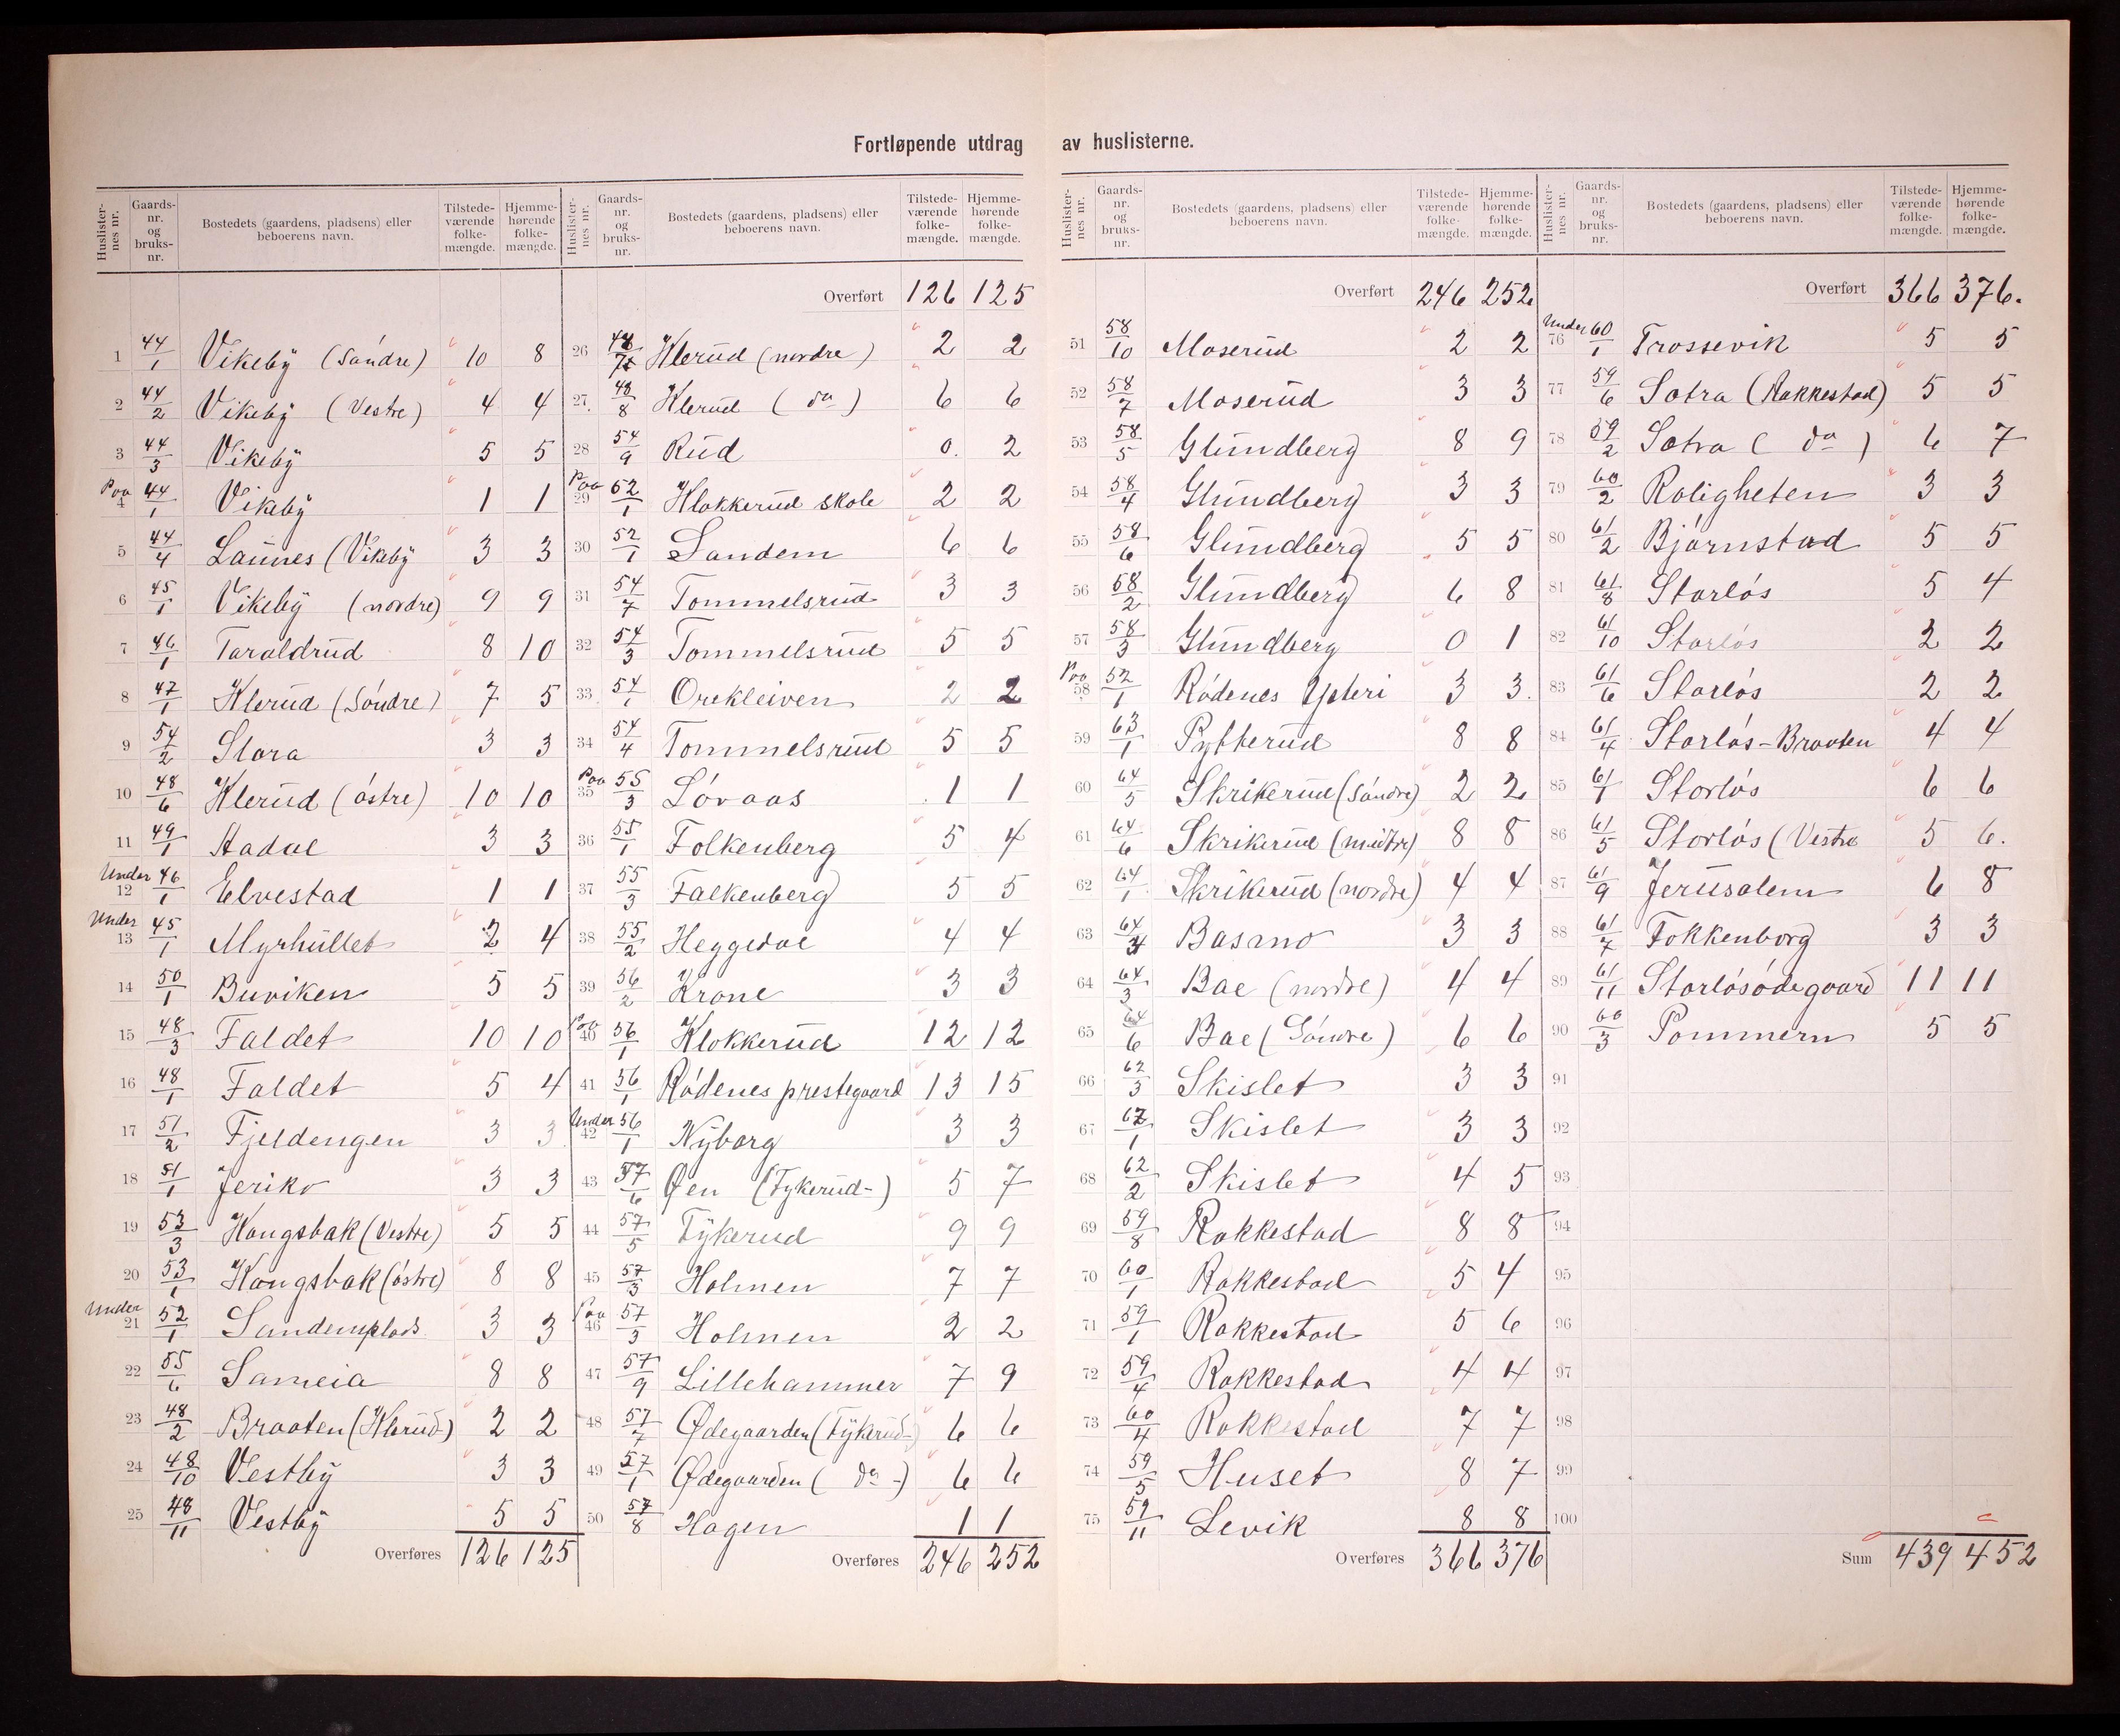 Fortløpende utdrag av huslisterne.
Huslisternes nr. Gaards-nr. og bruks-nr. Bostedets (gaardens, pladsens) eller beboerens navn. Tilstedeværende folkemængde. Hjemmehørende folkemængde.
1 44/1 Vikeby (Søndre) 10 8
2 44/2 Vikeby (Vestre) 4 4
3 44/3 Vikeby 5 5
Paa 4 44/1 Vikeby 1 1
5 44/4 Launes (Vikeby 3 3
6 45/1 Vikeby (nordre) 9 9
7 46/1 Taraldrud 8 10
8 47/1 Klerud (Søndre) 7 5
9 54/2 Slora 3 3
10 48/6 Klerud (østre) 10 10
11 49/1 Aadal 3 3
Under 12 46/1 Elvestad 1 1
Under 13 45/1 Myrhullet 2 4
14 50/1 Buviken 5 5
15 48/3 Faldet 10 10
16 48/1 Faldet 5 4
17 51/2 Fjeldengen 3 3
18 51/1 Jeriko 3 3
19 53/3 Kongsbak (Vestre) 5 5
20 53/1 Kongsbak (østre) 8 8
Under 21 52/1 Sandemplads 3 3
22 55/6 Sameia 8 8
23 48/2 Braaten (Klerud) 2 2
24 48/10 Vestby 3 3
25 48/11 Vestby 5 5
Overføres 126 125
Huslisternes nr. Gaards-nr. og bruks-nr. Bostedets (gaardens, pladsens) eller beboerens navn. Tilstedeværende folkemængde. Hjemmehørende folkemængde.
Overført 126 125
26 48/7 Klerud (nordre) 2 2
27 48/8 Klerud (do) 6 6
28 54/9 Rud 0. 2
Paa 29 52/1 Klokkerud skole 2 2
30 52/1 Sandem 6 6
31 54/7 Tommelsrud 3 3
32 54/3 Tommelsrud 5 5
33 54/1 Orekleiven 2 2
34 54/4 Tommelsrud 5 5
Paa 35 55/3 Løvaas 1 1
36 55/1 Folkenberg 5 4
37 55/3 Falkenberg 5 5
38 55/2 Heggedal 4 4
39 56/2 Krone 3 3
Paa 40 56/1 Klokkerud 12 12
41 56/1 Rødenes prestegaard 13 15
Under 42 56/1 Nyborg 3 3
43 57/6 Øen (Tykerud-) 5 7
44 57/5 Tykerud 9 9
45 57/3 Holmen 7 7
Paa 46 57/3 Holmen 2 2
47 57/9 Lillehammer 7 9
48 57/7 Ødegaarden (Tykerud-) 6 6
49 57/1 Ødegaarden (do-) 6 6
50 57/8 Hagen 1 1
Overføres 246 252
Huslisternes nr. Gaards-nr. og bruks-nr. Bostedets (gaardens, pladsens) eller beboerens navn. Tilstedeværende folkemængde. Hjemmehørende folkemængde.
Overført 246 252
51 58/10 Moserud 2 2
52 58/7 Moserud 3 3
53 58/5 Glundberg 8 9
54 58/4 Glundberg 3 3
55 58/6 Glundberg 5 5
56 58/2 Glundberg 6 8
57 58/3 Glundberg 0 1
Paa 58 52/1 Rødenes Ysteri 3 3.
59 63/1 Pytterud 8 8
60 64/5 Skrikerud (Søndre) 2 2
61 64/6 Skrikerud (midtre) 8 8
62 64/1 Skrikerud (nordre) 4 4
63 64/4 Basmo 3 3
64 64/3 Bae (nordre) 4 4
65 64/6 Bae (Søndre) 6 6
66 62/3 Skislet 3 3
67 62/1 Skislet 3 3
68 62/2 Skislet 4 5
69 59/8 Rakkestad 8 8
70 60/1 Rakkestad 5 4
71 59/1 Rakkestad 5 6
72 59/4 Rakkestad 4 4
73 60/4 Rakkestad 7 7
74 59/5 Huset 8 7
75 59/11 Levik 8 8
Overføres 366 376
Huslisternes nr. Gaards-nr. og bruks-nr. Bostedets (gaardens, pladsens) eller beboerens navn. Tilstedeværende folkemængde. Hjemmehørende folkemængde.
Overført 366 376.
Under 76 60/1 Trossevik 5 5
77 59/6 Sotra (Rakkestad) 5 5
78 59/2 Sotra (do) 6 7
79 60/2 Roligheten 3 3
80 61/2 Bjørnstad 5 5
81 61/8 Storløs 5 4
82 61/10 Storløs 2 2
83 61/6 Storløs 2 2
84 61/4 Storløs-Braaten 4 4
85 61/1 Storløs 6 6
86 61/5 Storløs (Vestre 5 6.
87 61/9 Jerusalem 6 8
88 61/7 Fokkenborg 3 3
89 61/11 Storløsødegaard 11 11
90 60/3 Pommern 5 5
91
92
93
94
95
96
97
98
99
100
Sum 439 452